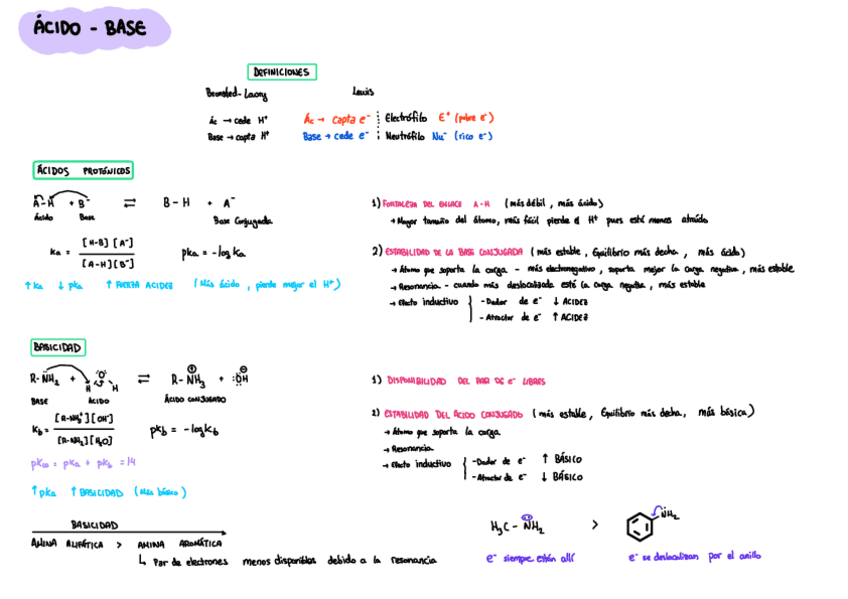 ÁCIDO - BASE
DEFINICIONES
Bronsted-Lowry Lewis
Ác → cede H⁺ Ác → capta e⁻ Electrófilo E⁺ (pobre e⁻)
Base → capta H⁺ Base → cede e⁻ Neutrófilo Nu⁻ (rico e⁻)
ÁCIDOS PROTÓNICOS
A-H + B⁻ ⇌ B-H + A⁻
Ácido Base Base Conjugada
Ka = [H-B][A⁻] / [A-H][B⁻] pKa = -log Ka
↑ Ka ↓ pKa ↑ FUERZA ACIDEZ (Más ácido, pierde mejor el H⁺)
1) FORTALEZA DEL ENLACE A-H (más débil, más ácido)
→ Mayor tamaño del átomo, más fácil pierde el H⁺ pues está menos atraído
2) ESTABILIDAD DE LA BASE CONJUGADA (más estable, Equilibrio más decha, más ácido)
→ Átomo que soporta la carga - más electronegativo, soporta mejor la carga negativa, más estable
→ Resonancia - cuando más deslocalizada esté la carga negativa, más estable
→ Efecto inductivo - Dador de e⁻ ↓ ACIDEZ
- Atractor de e⁻ ↑ ACIDEZ
BASICIDAD
R-NH₂ + H O H ⇌ R-NH₃ ⊕ + :OH ⊖
BASE ÁCIDO ÁCIDO CONJUGADO
Kb = [R-NH₃⁺][OH⁻] / [R-NH₂][H₂O] pKb = -log Kb
pKw = pKa + pKb = 14
↑ pKa ↑ BASICIDAD (Más básico)
1) DISPONIBILIDAD DEL PAR DE e⁻ LIBRES
2) ESTABILIDAD DEL ÁCIDO CONJUGADO (más estable, Equilibrio más decha, más básica)
→ Átomo que soporta la carga
→ Resonancia
→ Efecto inductivo - Dador de e⁻ ↑ BÁSICO
- Atractor de e⁻ ↓ BÁSICO
BASICIDAD
AMINA ALIFÁTICA > AMINA AROMÁTICA
↳ Par de electrones menos disponibles debido a la resonancia
H₃C - NH₂ > NH₂
e⁻ siempre están allí e⁻ se deslocalizan por el anillo